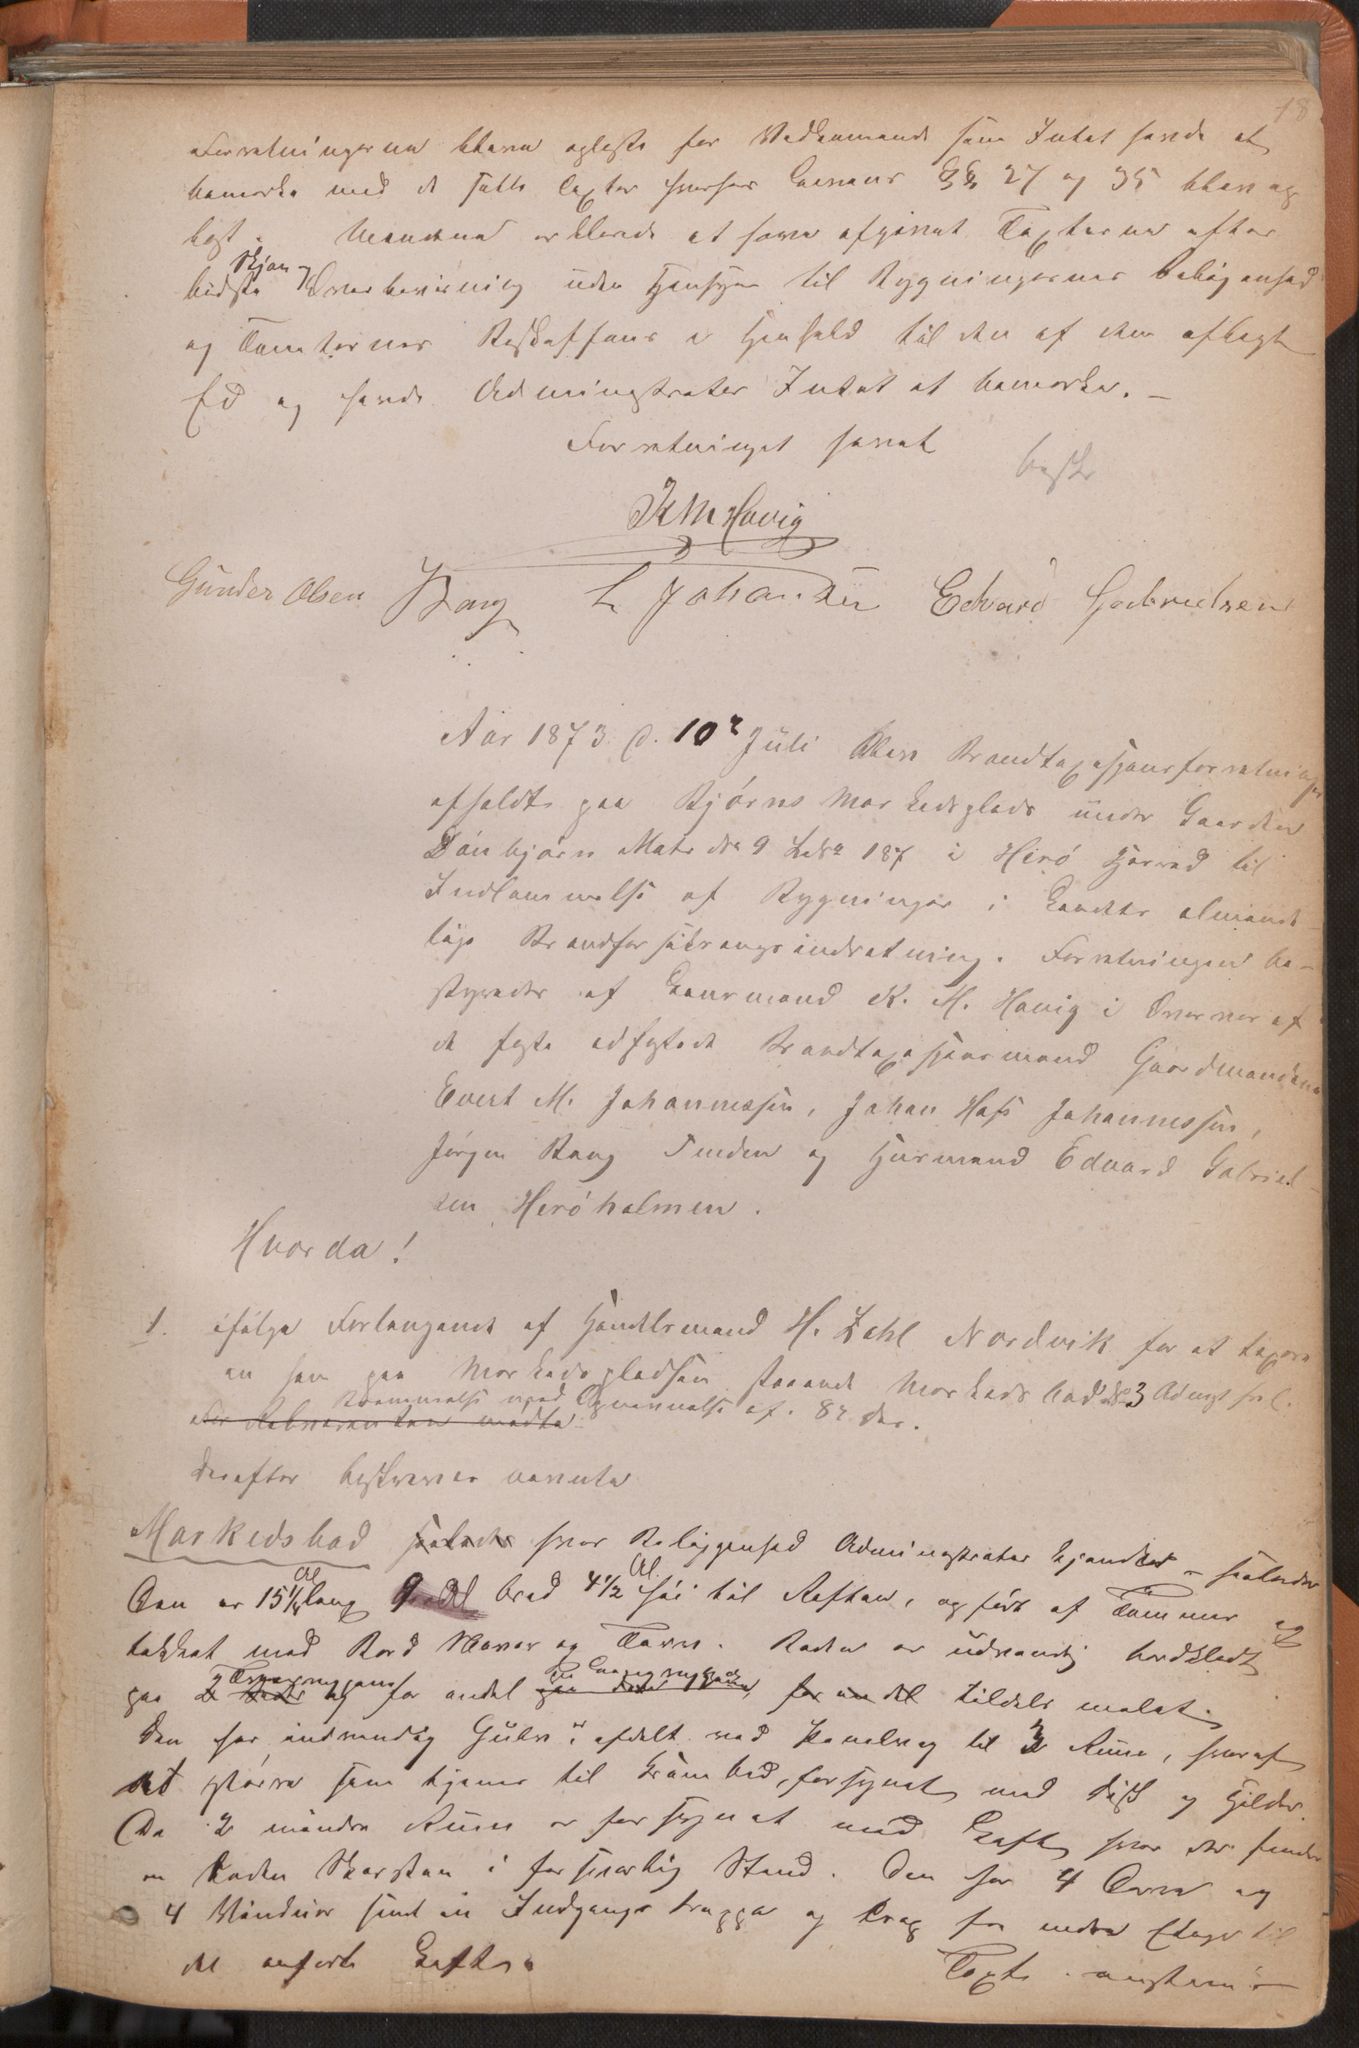 18
Forretningerne bleve oplæste for Vedkommende som Intet havde at
bemærke med de satte Taxter hvorfor Lovens §§ 27 og 35 blev op
læst. Mændene erklærede at have afgivet Taxterne efter
bedste Skjøn og Overbeviisning uden Hensyn til Bygningernes Beliggenhed
og Tomternes Beskaffenhed i Henhold til den af dem aflagte
Ed og havde Administrator Intet at bemærke. –
Forretninget hævet
beskr
K M Havig
Gunder Olsen J Bang L Johansen Edvard Gabrielsen
Aar 1873 d. 10de Juli blev Brandtaxasjonsforretninger
afholdt paa Bjørns Markedsplads under Gaarden
Dønbjørn Matr No 9 Lbno 187 i Herø Herred til
Indlemmelse af Bygninger i Landets almindelige
Brandforsikringsindretning. Forretningen be-
styredes af Lensmand K. M. Havig i Overvær af
de faste edfæstede Brandtaxasjonsmænd Gaardmændene
Evert M. Johannessen, Johan Hass Johannessen,
Jørgen Bang Tenden og Husmand Edvard Gabriel-
sen Herøholmen.
Hvorda!
1. ifølge Forlangende af Handelsmand H. Zahl Nordvik for at taxere
en ham paa Markedspladsen staaende Markedsbod No 3
af 82
derefter beskreven saaledes
Markedsbod hvor Beliggenhed Administrator kjender – saaledes
Den er 15¼ Al lang 9 Al bred 4½ Al høi til Raften, opført af Tømmer og
tækket med Bord Næver og Torv. Boden er udvendig bordklædt
paa 2 Tværvægge og for endel tildels malet.
Den har indvendig Gulv er afdelt ved Panelvæg til 3 Rum, hvoraf
det større som tjener til Krambod, forsynet med Disk og Hylder.
De 2 mindre Rum er forsynet med Loft hvor der findes
en Skorsten i forsvarlig Stand. Den har 4 Døre og
4 Vinduer samt en Indgangs trappe og Trap fra nedre Etage til
det anførte Loft.
Taxt